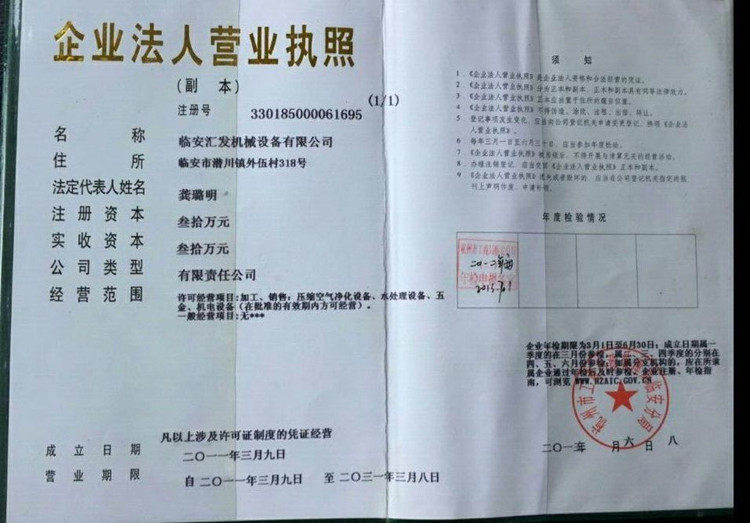 企业法人营业执照
(副 本)
(1/1)
注册号 330185000061695
名 称 临安汇发机械设备有限公司
住 所 临安市潜川镇外伍村318号
法定代表人姓名 龚璐明
注册资本 叁拾万元
实收资本 叁拾万元
公司类型 有限责任公司
经营范围 许可经营项目:加工、销售:压缩空气净化设备、水处理设备、五
金、机电设备(在批准的有效期内方可经营)。
一般经营项目:无***
凡以上涉及许可证制度的凭证经营
成立日期 二〇一一年三月九日
营业期限 自 二〇一一年三月九日 至 二〇三一年三月八日
须 知
1.《企业法人营业执照》是企业法人资格和合法经营的凭证。
2.《企业法人营业执照》分为正本和副本,正本和副本具有同等法律效力。
3.《企业法人营业执照》正本应当置于住所的醒目位置。
4.《企业法人营业执照》不得伪造、涂改、出租、出借、转让。
5.登记事项发生变化,应当向公司登记机关申请变更登记,换领《企业法
人营业执照》。
6.每年三月一日至六月三十日,应当参加年度检验。
7.《企业法人营业执照》被吊销后,不得开展与清算无关的经营活动。
8.办理注销登记,应当交回《企业法人营业执照》正本和副本。
9.《企业法人营业执照》遗失或者毁坏的,应当在公司登记机关指定的报
刊上声明作废,申请补领。
年度检验情况
企业年检期限为3月1日至6月30日;成立日期属一
季度的在三月份参检,属二、三、四季度的分别在
四、五、六月份参检;如属分支机构的,应在所隶
属企业通过年检后及时参检。企业注册、年检指
南,可浏览 WWW.HZAIC.GOV.CN
月 六 日 八